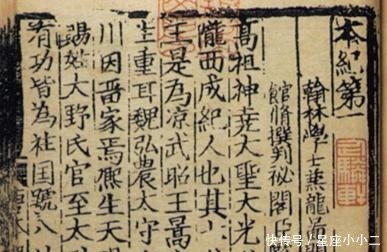 本紀第一
翰林學士兼龍
館脩撰判祕閣
高祖神堯大聖大光
隴西成紀人也其
王是為涼武昭王暠
生重耳魏弘農太守
川因留家焉熈生天
賜姓大野氏官至太
有功皆為柱國號八
快传号/星座小小二